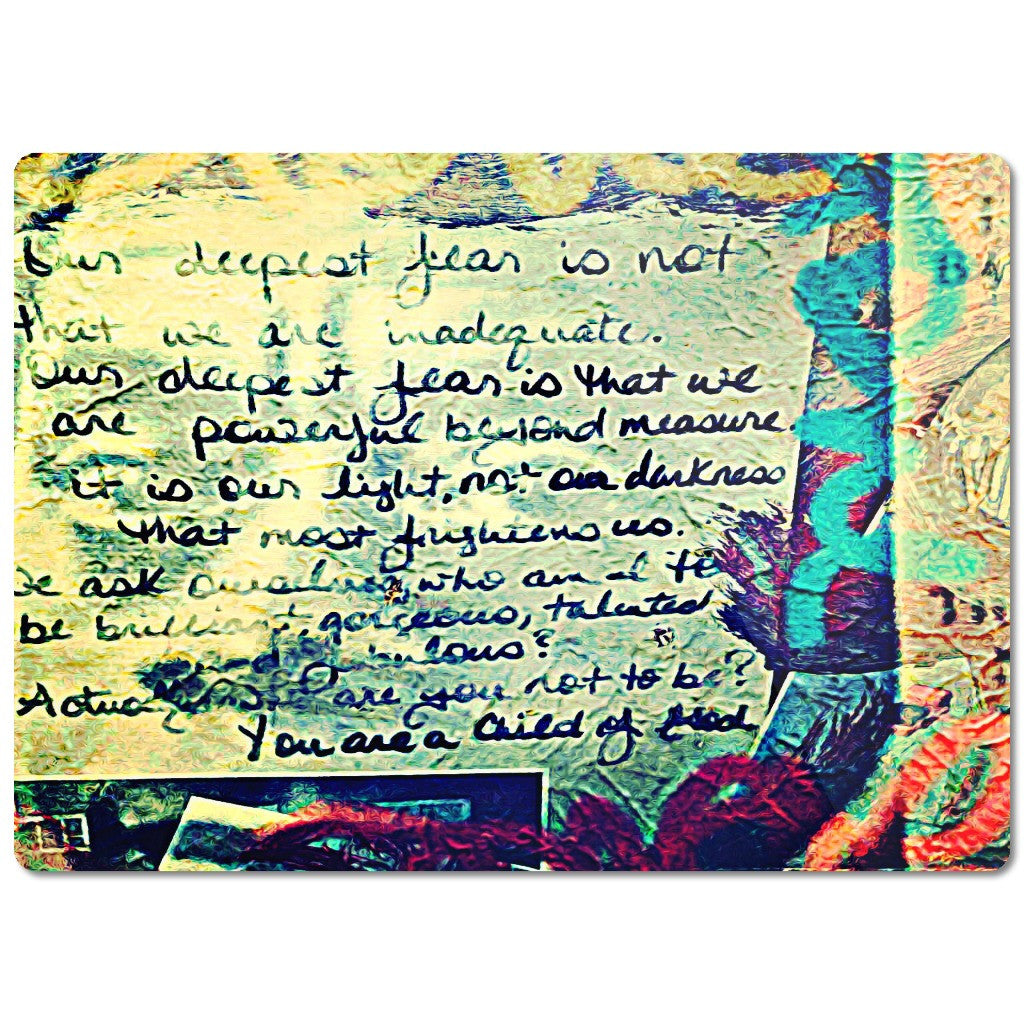 Our deepest fear is not
that we are inadequate.
Our deepest fear is that we
are powerful beyond measure.
it is our light, not our darkness
that most frightens us.
we ask ourselves, who am I to
be brilliant, gorgeous, talented
and fabulous?
Actually are you not to be?
You are a Child of God